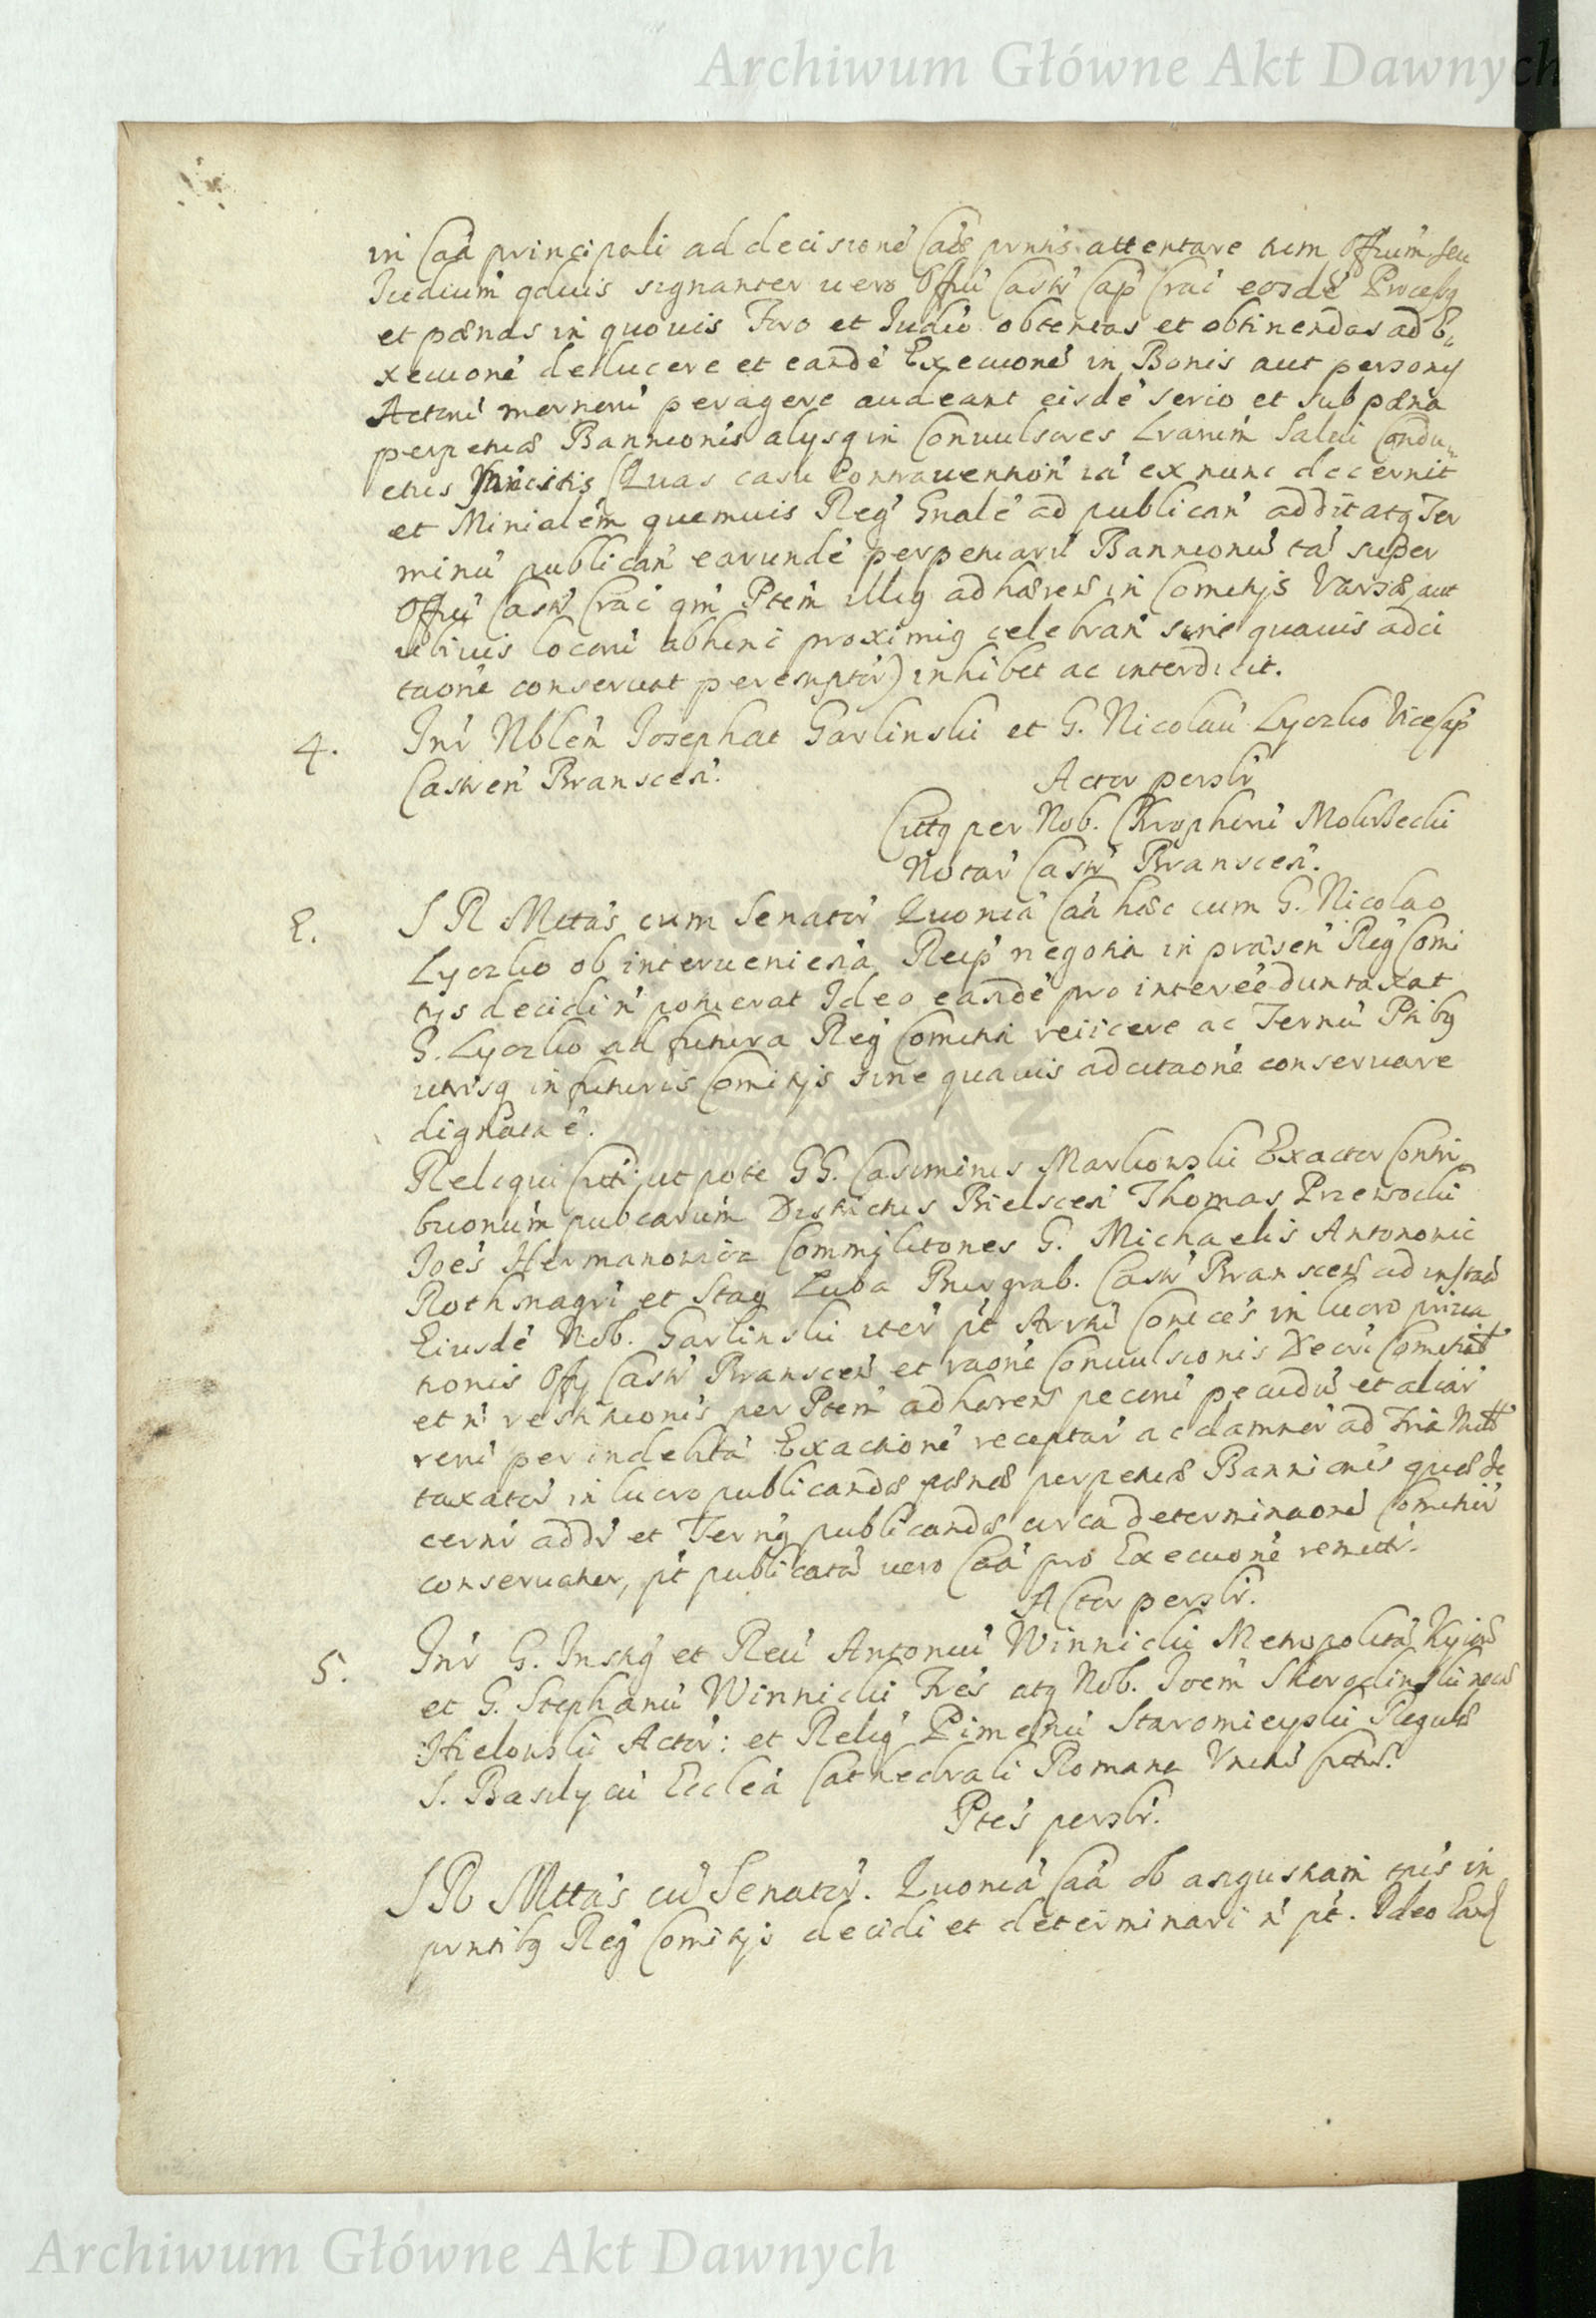 Archiwum Główne Akt Dawnych
in Caã principali ad decisionẽ Caæ pruntis attentare tum Offium seu
Iudium qduis signanter uero Offiũ Castr Cap Crac eosdẽ Processq
et pœnas in quouis Foro et Iudio obtentas et obtinendas ad E„
xecuonẽ deducere et eandẽ Execuonẽ in Bonis aut personis
Actorũ peragere audeant eisdẽ serio et sub pœna
perpetuæ Bannionis alysq in Conuulsores Lrarum Salui Condu„
ctus (Quas casu Contrauention iã ex nunc decernit
et Minialem quemuis Reg Gnalẽ ad publican addit atq Ter
minũ publican earundẽ perpetuarũ Bannionũ tã super
Offiũ Castr Crac qm Ptem illiq adhæren in Comitijs Varsæ aut
ubiuis locorũ abhinc proximiq celebran sine quauis adci
taonẽ conseruat perempter) inhibet ac interdicit.
4. Intr Nblem Iosephat Garlinski et G. Nicolaũ Lyczko Vicecap
Castren Branscen.
Actor persltr
Cittq per Nob. Mokrzecki
Notar Castr Branscen.
S R Mttas cum Senator Quoniã Caã hæc cum G. Nicolao
Lyczko ob interuenienã Reip negotia in præsen Reg Comi
tijs decidi ñ potuerat Ideo eandẽ pro interee duntaxat
G. Lyczko ad futura Reg Comitia reiicere ac Ternũ Ptibq
utrisq in futuris Comitijs sine quauis adcitaonẽ conseruare
dignata ẽ.
Reliqui Citti ut pote GG. Casimirus Markowski Exactor Contri
buonum pubcarum Districtus Bielscen Thomas Przewocki
Ioes Hermanowicz Commilitones G. Michaelis Antonowic
Rothmagri et Stan Zuba Burgrab. Castr Branscen ad instaã
Eiusdẽ Nob. Garlinski in lucro priua
tionis Offy Castr Branscen et raonẽ Conuulsionis Decri Comitial
et ñ restitionis per Ptem adhæren pecuni pecudũ et aliar
rerũ per indebitã Exactionẽ receptar ac damnor ad Tria Mill
taxator in lucro publicandæ pœnæ perpetuæ Bannionis quæ de
cerni addi et Ternq publicandæ circa determinaonẽ Comitior
conseruatur, pt publicatã uero Caã pro Execuonẽ remitti.
Actor persltr.
5. Intr G. Instq et Reu Antoniũ Winnicki Metropolitã Kyiouæ
et G. Stephanũ Winnicki Fres atq Nob. Ioem Skorodinski necno
Hielowski Actor: et Relig Pimenũ Staromieyski Regulæ
S. Basily in Eccleã Cathedrali Romanæ Vniti
Ptes persltr.
S R Mttas cũ Senator. Quoniã Caã ob angustiam tpis in
pruntibq Reg Comitijs decidi et determinari ñ pt. Ideo Eand
Archiwum Główne Akt Dawnych